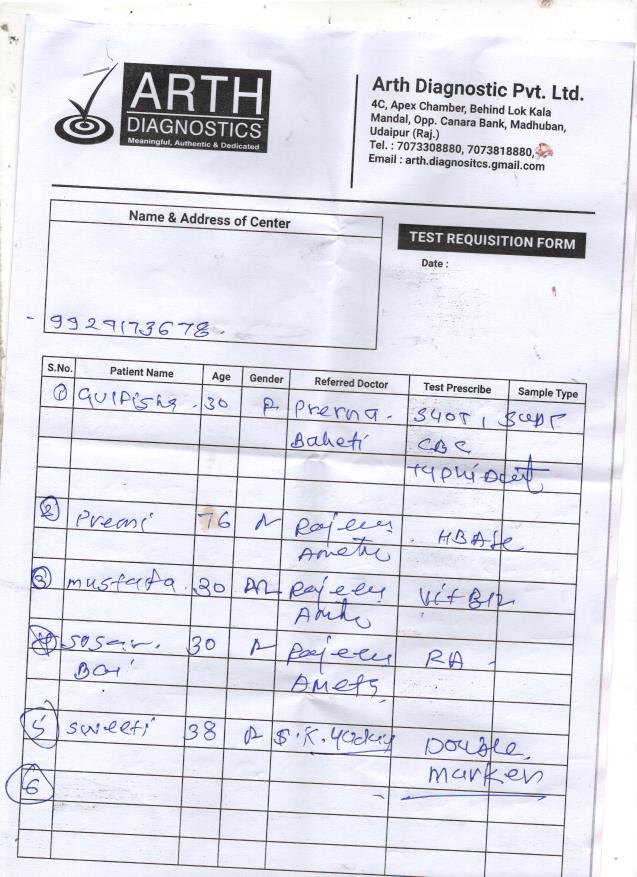 ARTH
DIAGNOSTICS
Meaningful, Authentic & Dedicated
Arth Diagnostic Pvt. Ltd.
4C, Apex Chamber, Behind Lok Kala
Mandal, Opp. Canara Bank, Madhuban,
Udaipur (Raj.)
Tel. : 7073308880, 7073818880,
Email : arth.diagnositcs.gmail.com
Name & Address of Center
TEST REQUISITION FORM
Date :
9929173678.
S.No. Patient Name Age Gender Referred Doctor Test Prescribe Sample Type
1 Gulfisha . 30 Prerna . SGOT, SGPT
Baheti CBC
Typhidot
2 Premi 76 Rajeev
. HBA1c
3 mustafa . 30 Rajeev Vit B12
4 sosar . 30 Rajeev RA -
Bai
5 sweeti 38 S.K. Yadav Double
marker
6